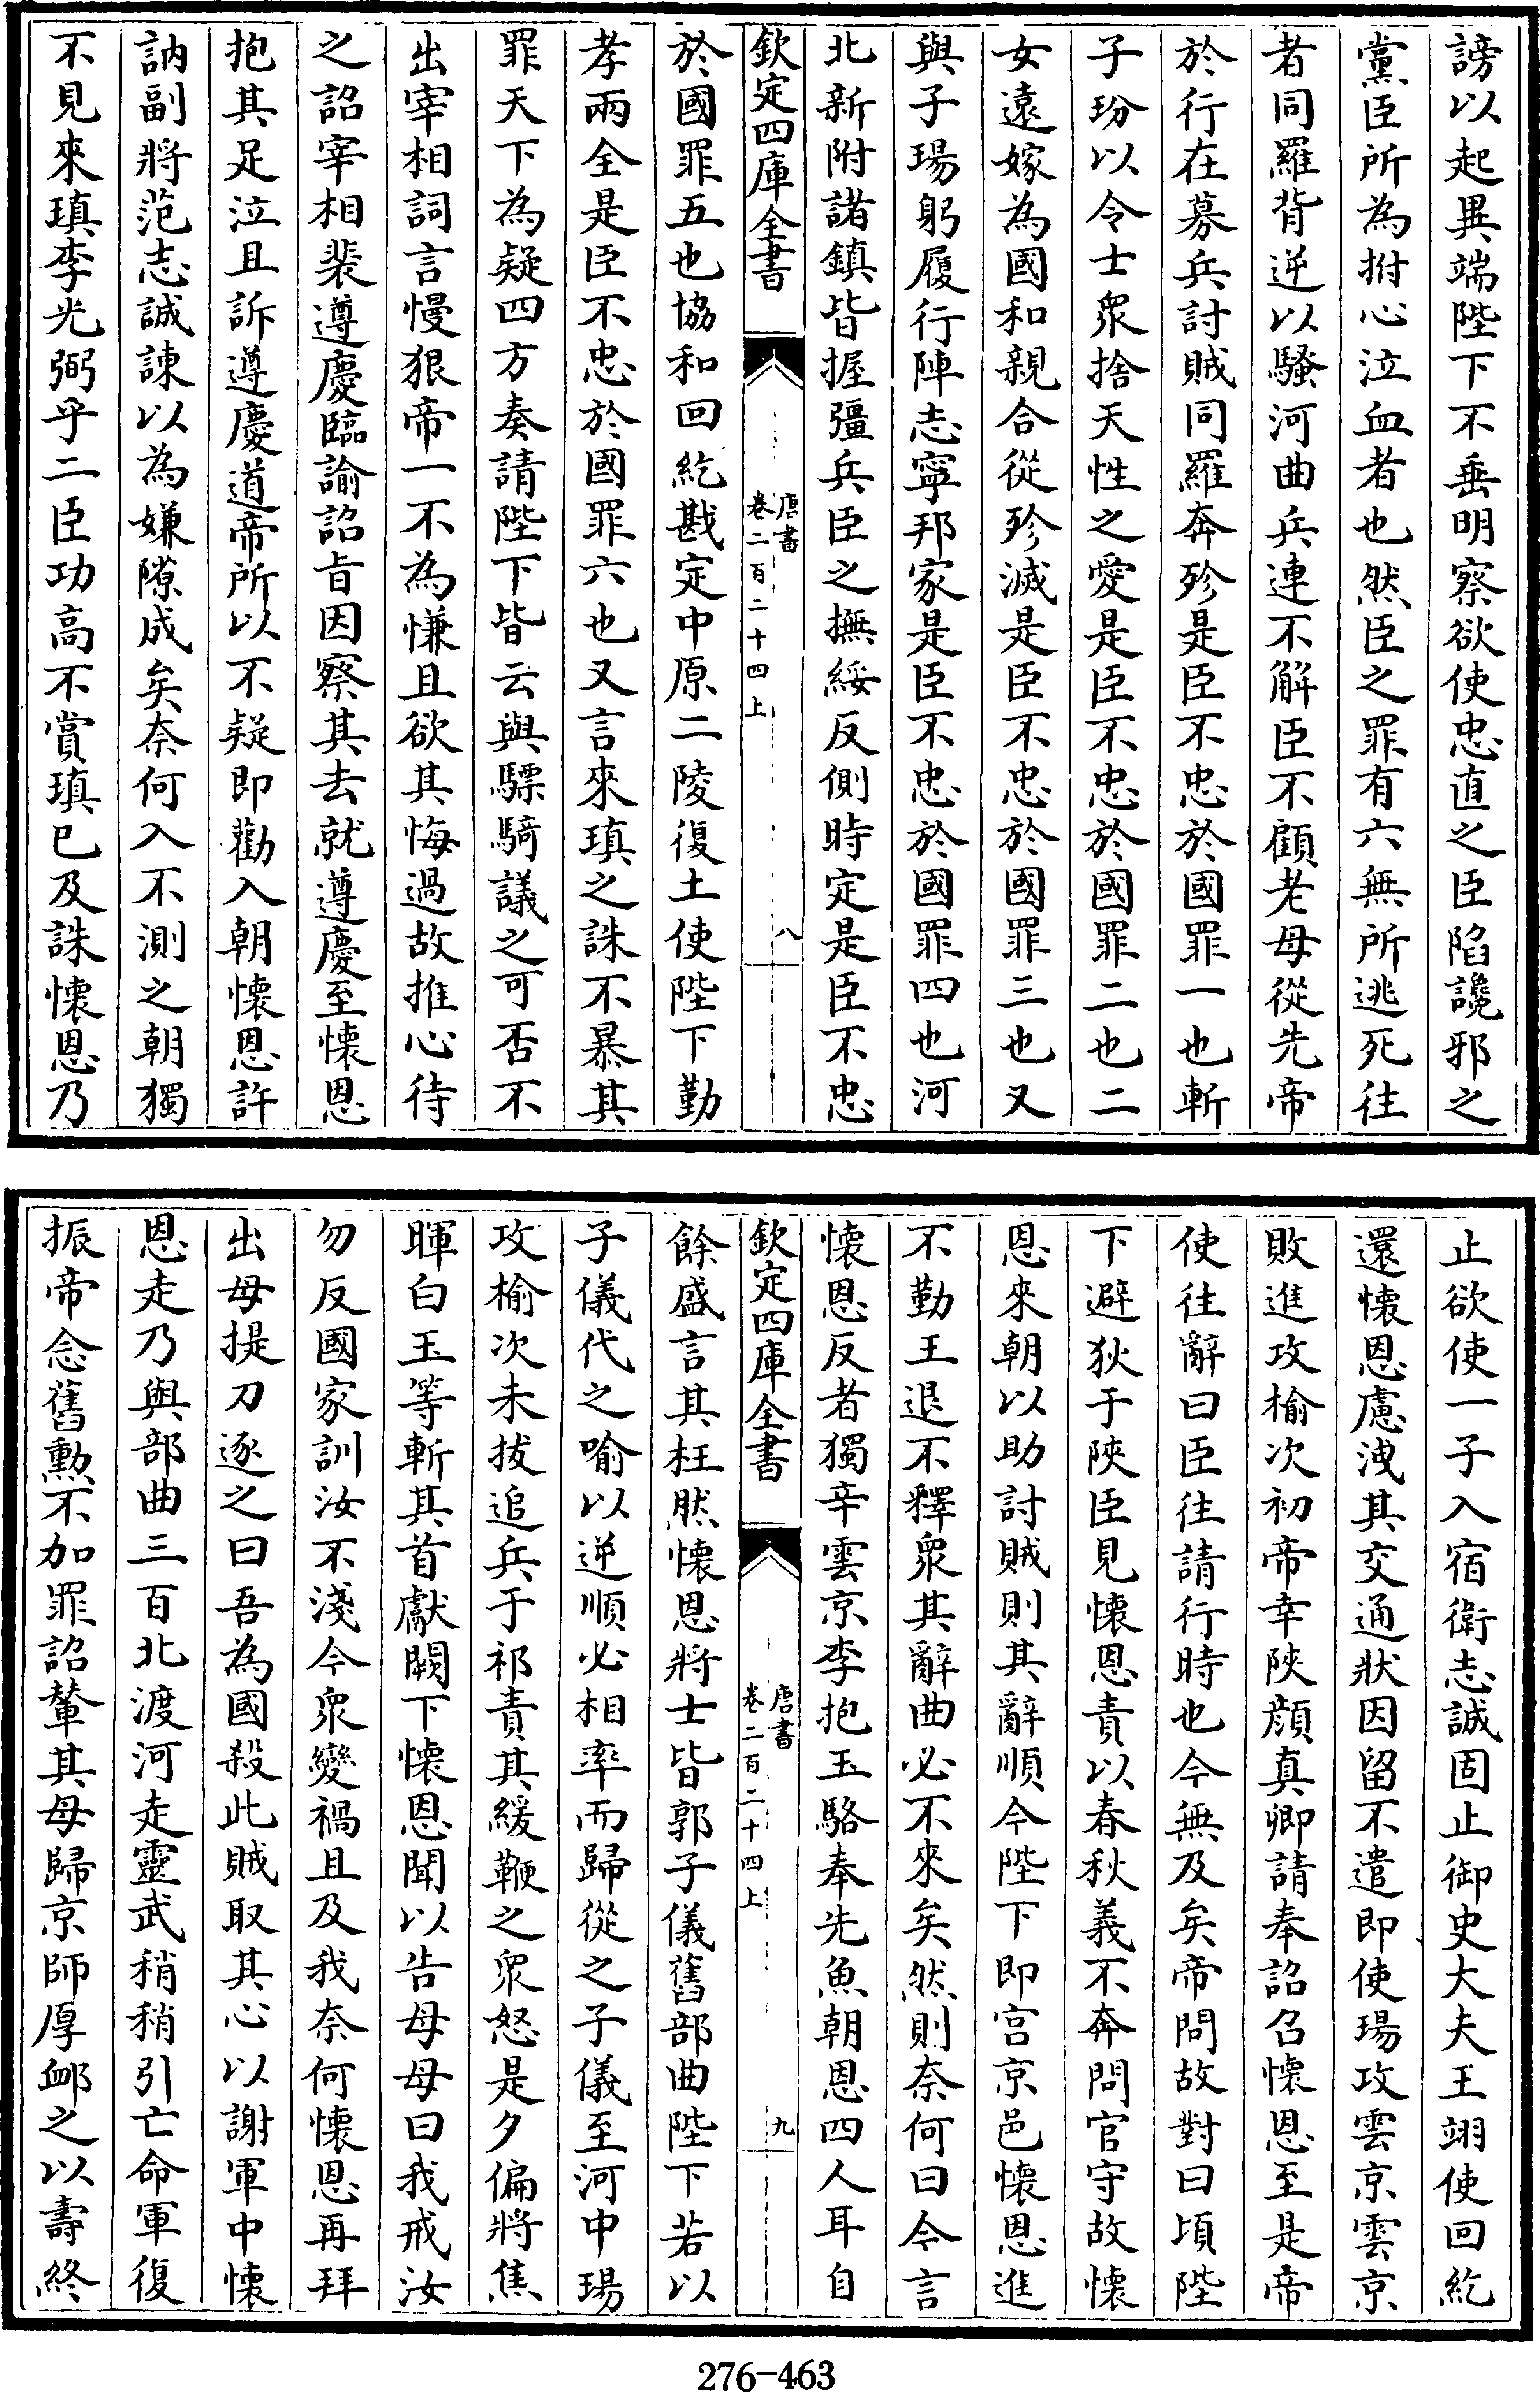 謗以起異端陛下不垂明察欲使忠直之臣陷讒邪之
黨臣所為拊心泣血者也然臣之罪有六無所逃死往
者同羅背逆以騷河曲兵連不解臣不顧老母從先帝
於行在募兵討賊同羅奔殄是臣不忠於國罪一也斬
子玢以令士衆捨天性之愛是臣不忠於國罪二也二
女遠嫁為國和親合從殄滅是臣不忠於國罪三也又
與子瑒躬履行陣志寧邦家是臣不忠於國罪四也河
北新附諸鎮皆握彊兵臣之撫綏反側時定是臣不忠
欽定四庫全書
唐書
卷二百二十四上
八
於國罪五也協和回紇戡定中原二陵復土使陛下勤
孝兩全是臣不忠於國罪六也又言來瑱之誅不暴其
罪天下為疑四方奏請陛下皆云與驃騎議之可否不
出宰相詞言慢狠帝一不為慊且欲其悔過故推心待
之詔宰相裴遵慶臨諭詔旨因察其去就遵慶至懷恩
抱其足泣且訴遵慶道帝所以不疑即勸入朝懷恩許
訥副將范志誠諫以為嫌隙成矣奈何入不測之朝獨
不見來瑱李光弼乎二臣功高不賞瑱已及誅懷恩乃
止欲使一子入宿衛志誠固止御史大夫王翊使回紇
還懷恩慮洩其交通狀因留不遣即使瑒攻雲京雲京
敗進攻榆次初帝幸陝顏真卿請奉詔召懷恩至是帝
使往辭曰臣往請行時也今無及矣帝問故對曰頃陛
下避狄于陝臣見懷恩責以春秋義不奔問官守故懷
恩來朝以助討賊則其辭順今陛下即宫京邑懷恩進
不勤王退不釋衆其辭曲必不來矣然則奈何曰今言
懷恩反者獨辛雲京李抱玉駱奉先魚朝恩四人耳自
欽定四庫全書
唐書
卷二百二十四上
九
餘盛言其枉然懷恩將士皆郭子儀舊部曲陛下若以
子儀代之喻以逆順必相率而歸從之子儀至河中瑒
攻榆次未拔追兵于祁責其緩鞭之衆怒是夕偏將焦
暉白玉等斬其首獻闕下懷恩聞以告母母曰我戒汝
勿反國家訓汝不淺今衆變禍且及我奈何懷恩再拜
出母提刀逐之曰吾為國殺此賊取其心以謝軍中懷
恩走乃與部曲三百北渡河走靈武稍稍引亡命軍復
振帝念舊勲不加罪詔輦其母歸京師厚衈之以壽終
276-463